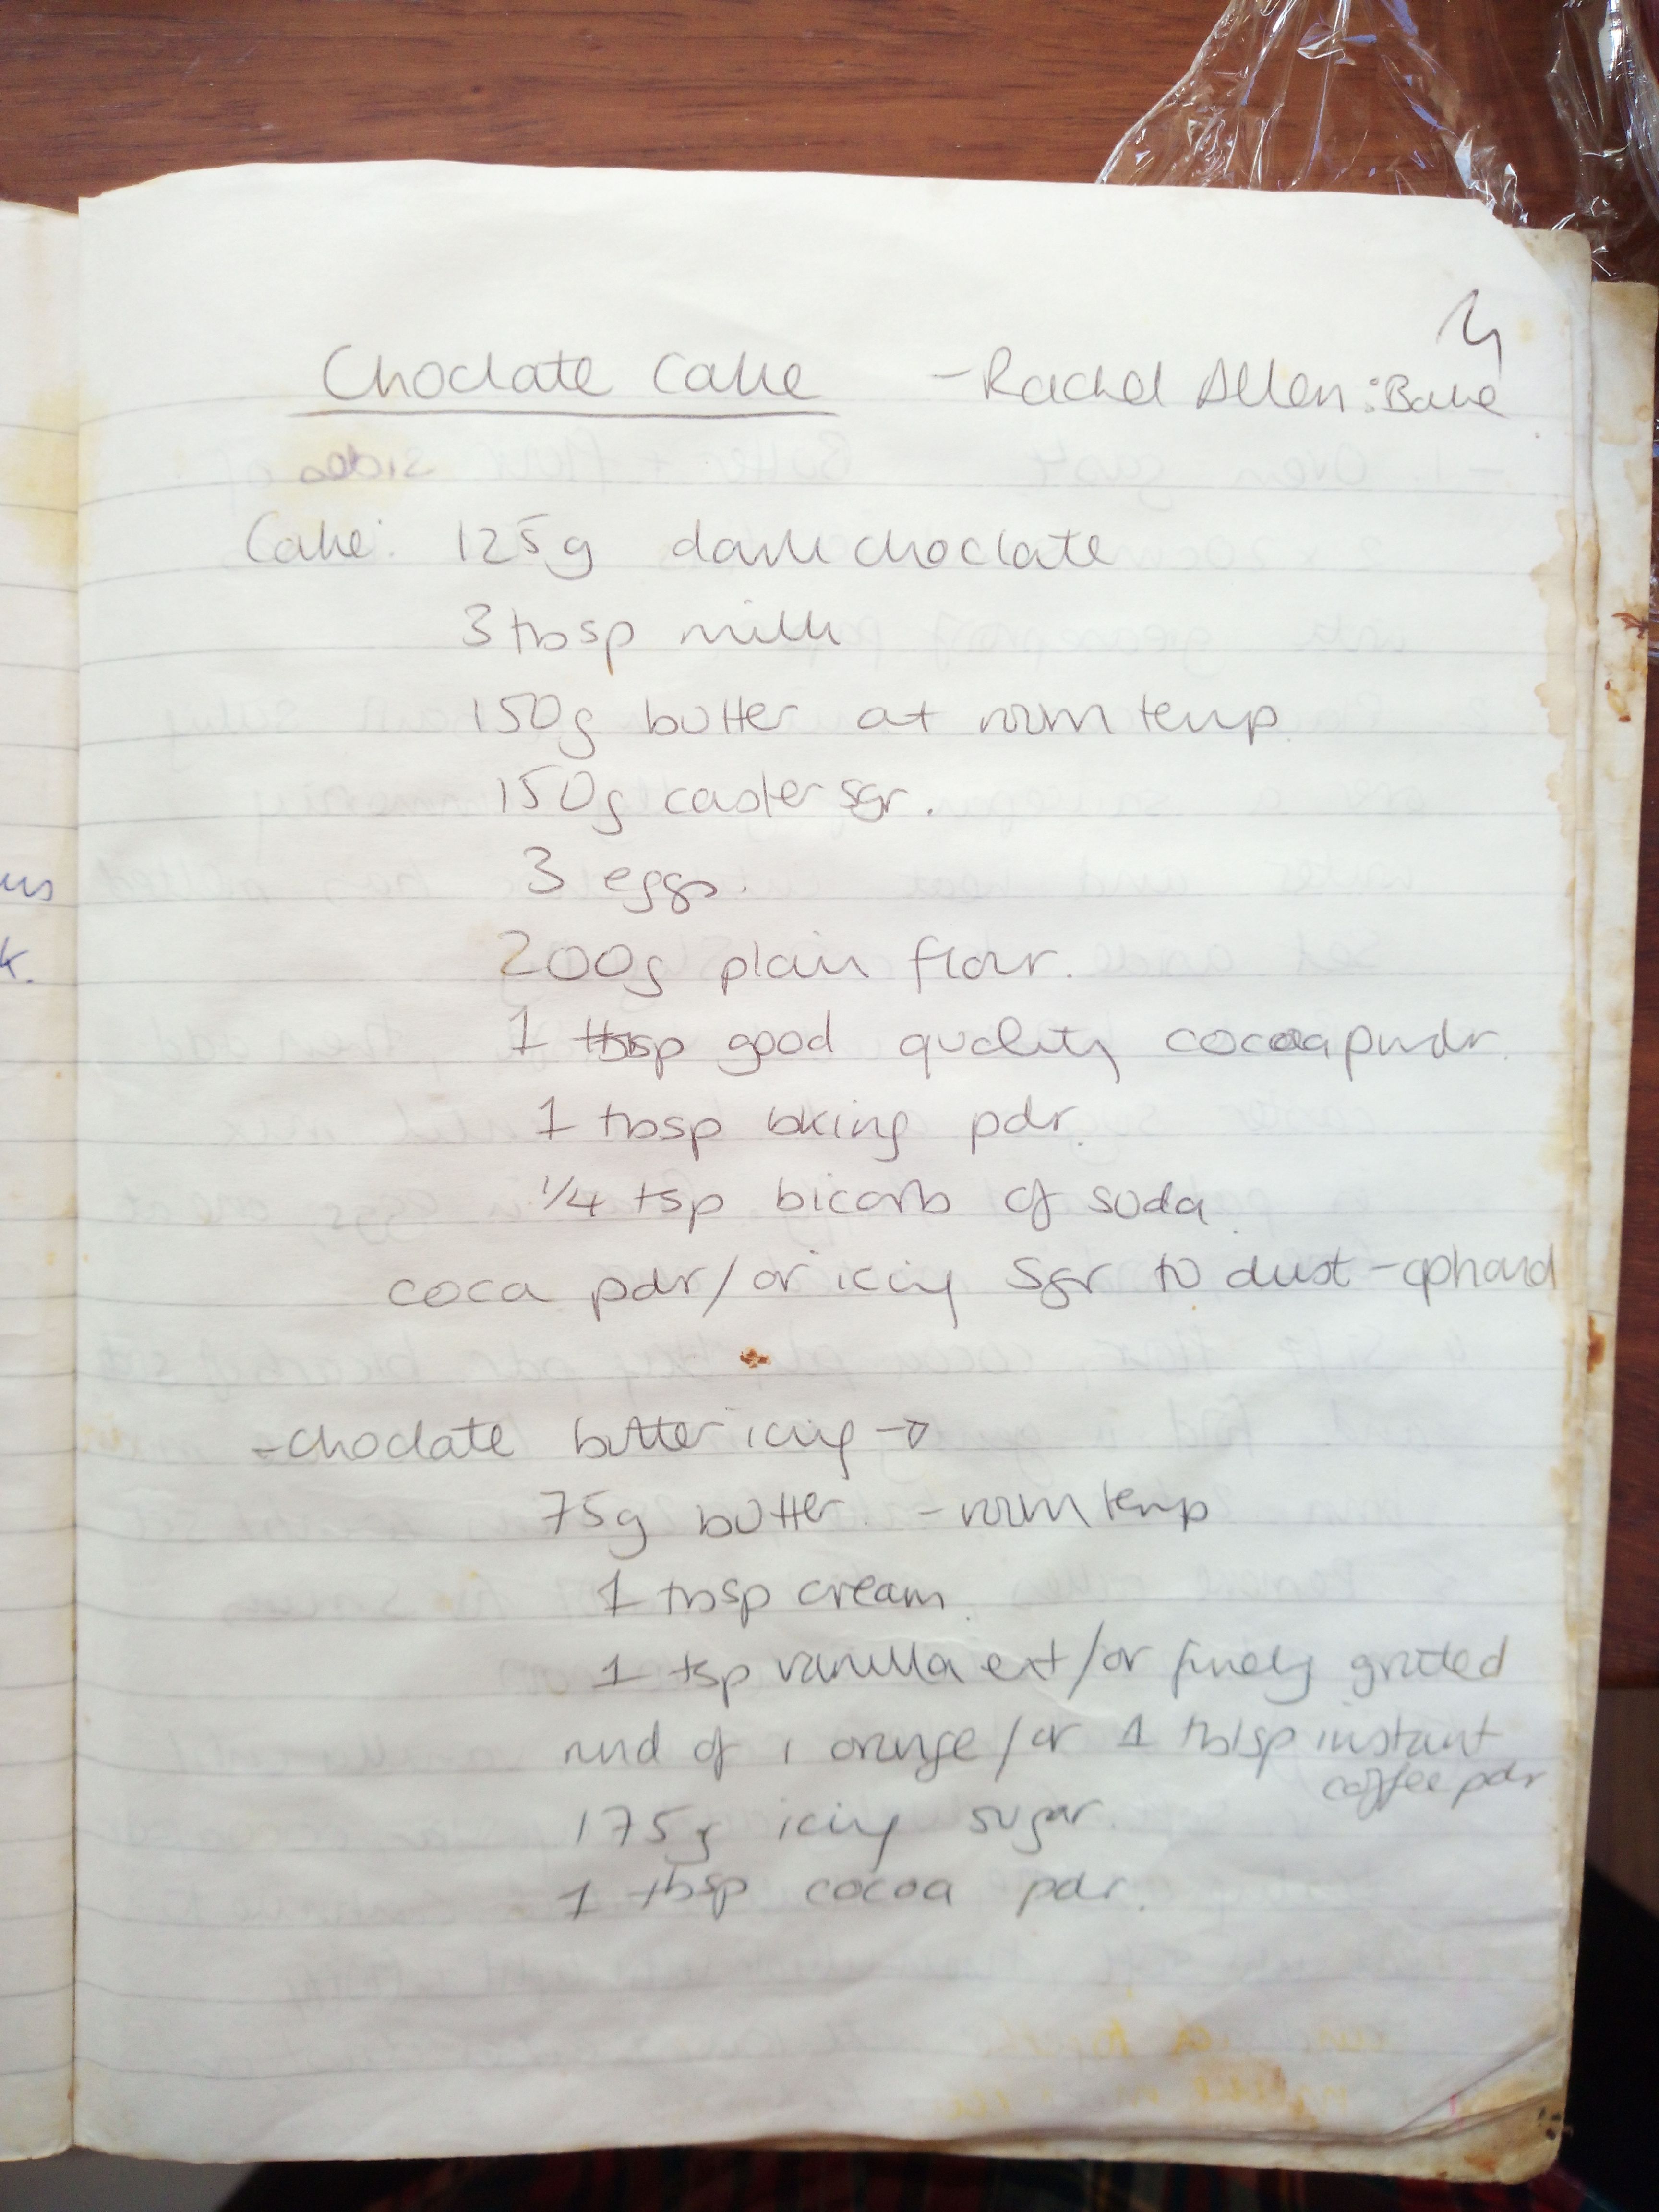 Choclate Cake - Rachel Allen: Bake
Cake: 125g dark choclate
3 tbsp milk
150g butter at room temp
150g caster sgr.
3 eggs.
200g plain flour.
1 tbsp good quality cocoa pwdr.
1 tbsp bking pdr.
1/4 tsp bicarb of soda
coca pdr/or icing sgr to dust -
- choclate butter icing →
75g butter. - room temp
1 tbsp cream.
1 tsp vanilla ext/or finely gratted
rind of 1 orange/or 1 tblsp instant
coffee pdr
175g icing sugar.
1 tbsp cocoa pdr.